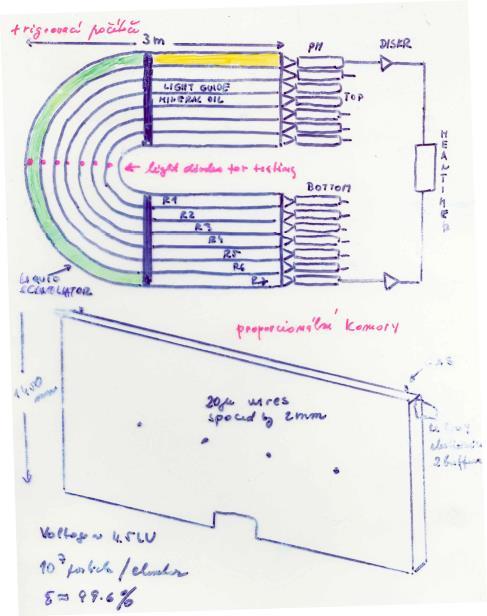 trigrovací počítače
3 m
PM
DISKR
LIGHT GUIDE
MINERAL OIL
TOP
MEANTIMER
← light diodes for testing
BOTTOM
R1
R2
R3
R4
R5
R6
R7
LIQUID
SCINTILATOR
proporcionální komory
GAS
1400
mm
20μ wires
spaced by 2mm
Voltage ~ 4.5 kV
10⁷ particle /
ε ≈ 99.6%